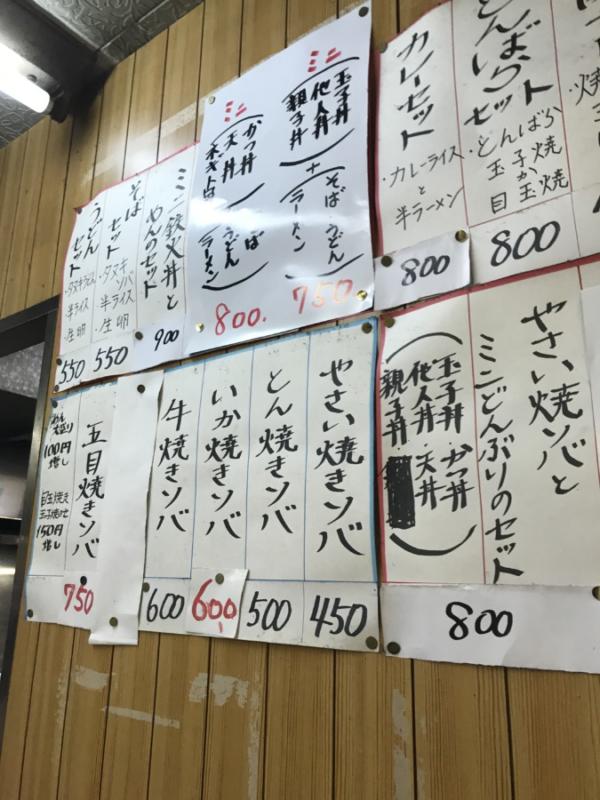 とんばらセット
・とんばら
玉子焼か
目玉焼
800
カレーセット
・カレーライスと
半ラーメン
800
ミニ
(玉子丼
他人丼
親子丼)
+
(そば・うどん
ラーメン)
750.
ミニ
(かつ丼
天丼
うどん
ラーメン)
800.
ミニ鉄火丼と
めんのセット
900
そば
セット
・タヌキソバ
半ライス
・生卵
550
うどん
セット
・タヌキ
半ライス
・生卵
550
やさい焼ソバと
ミニどんぶりのセット
(玉子丼・かつ丼
他人丼・天丼
親子丼)
800
やさい焼きソバ
450
とん焼きソバ
500
いか焼きソバ
600
牛焼きソバ
600
五目焼きソバ
750
めん
大盛り
100円
増し
目玉焼き
玉子焼のせ
150円
増し